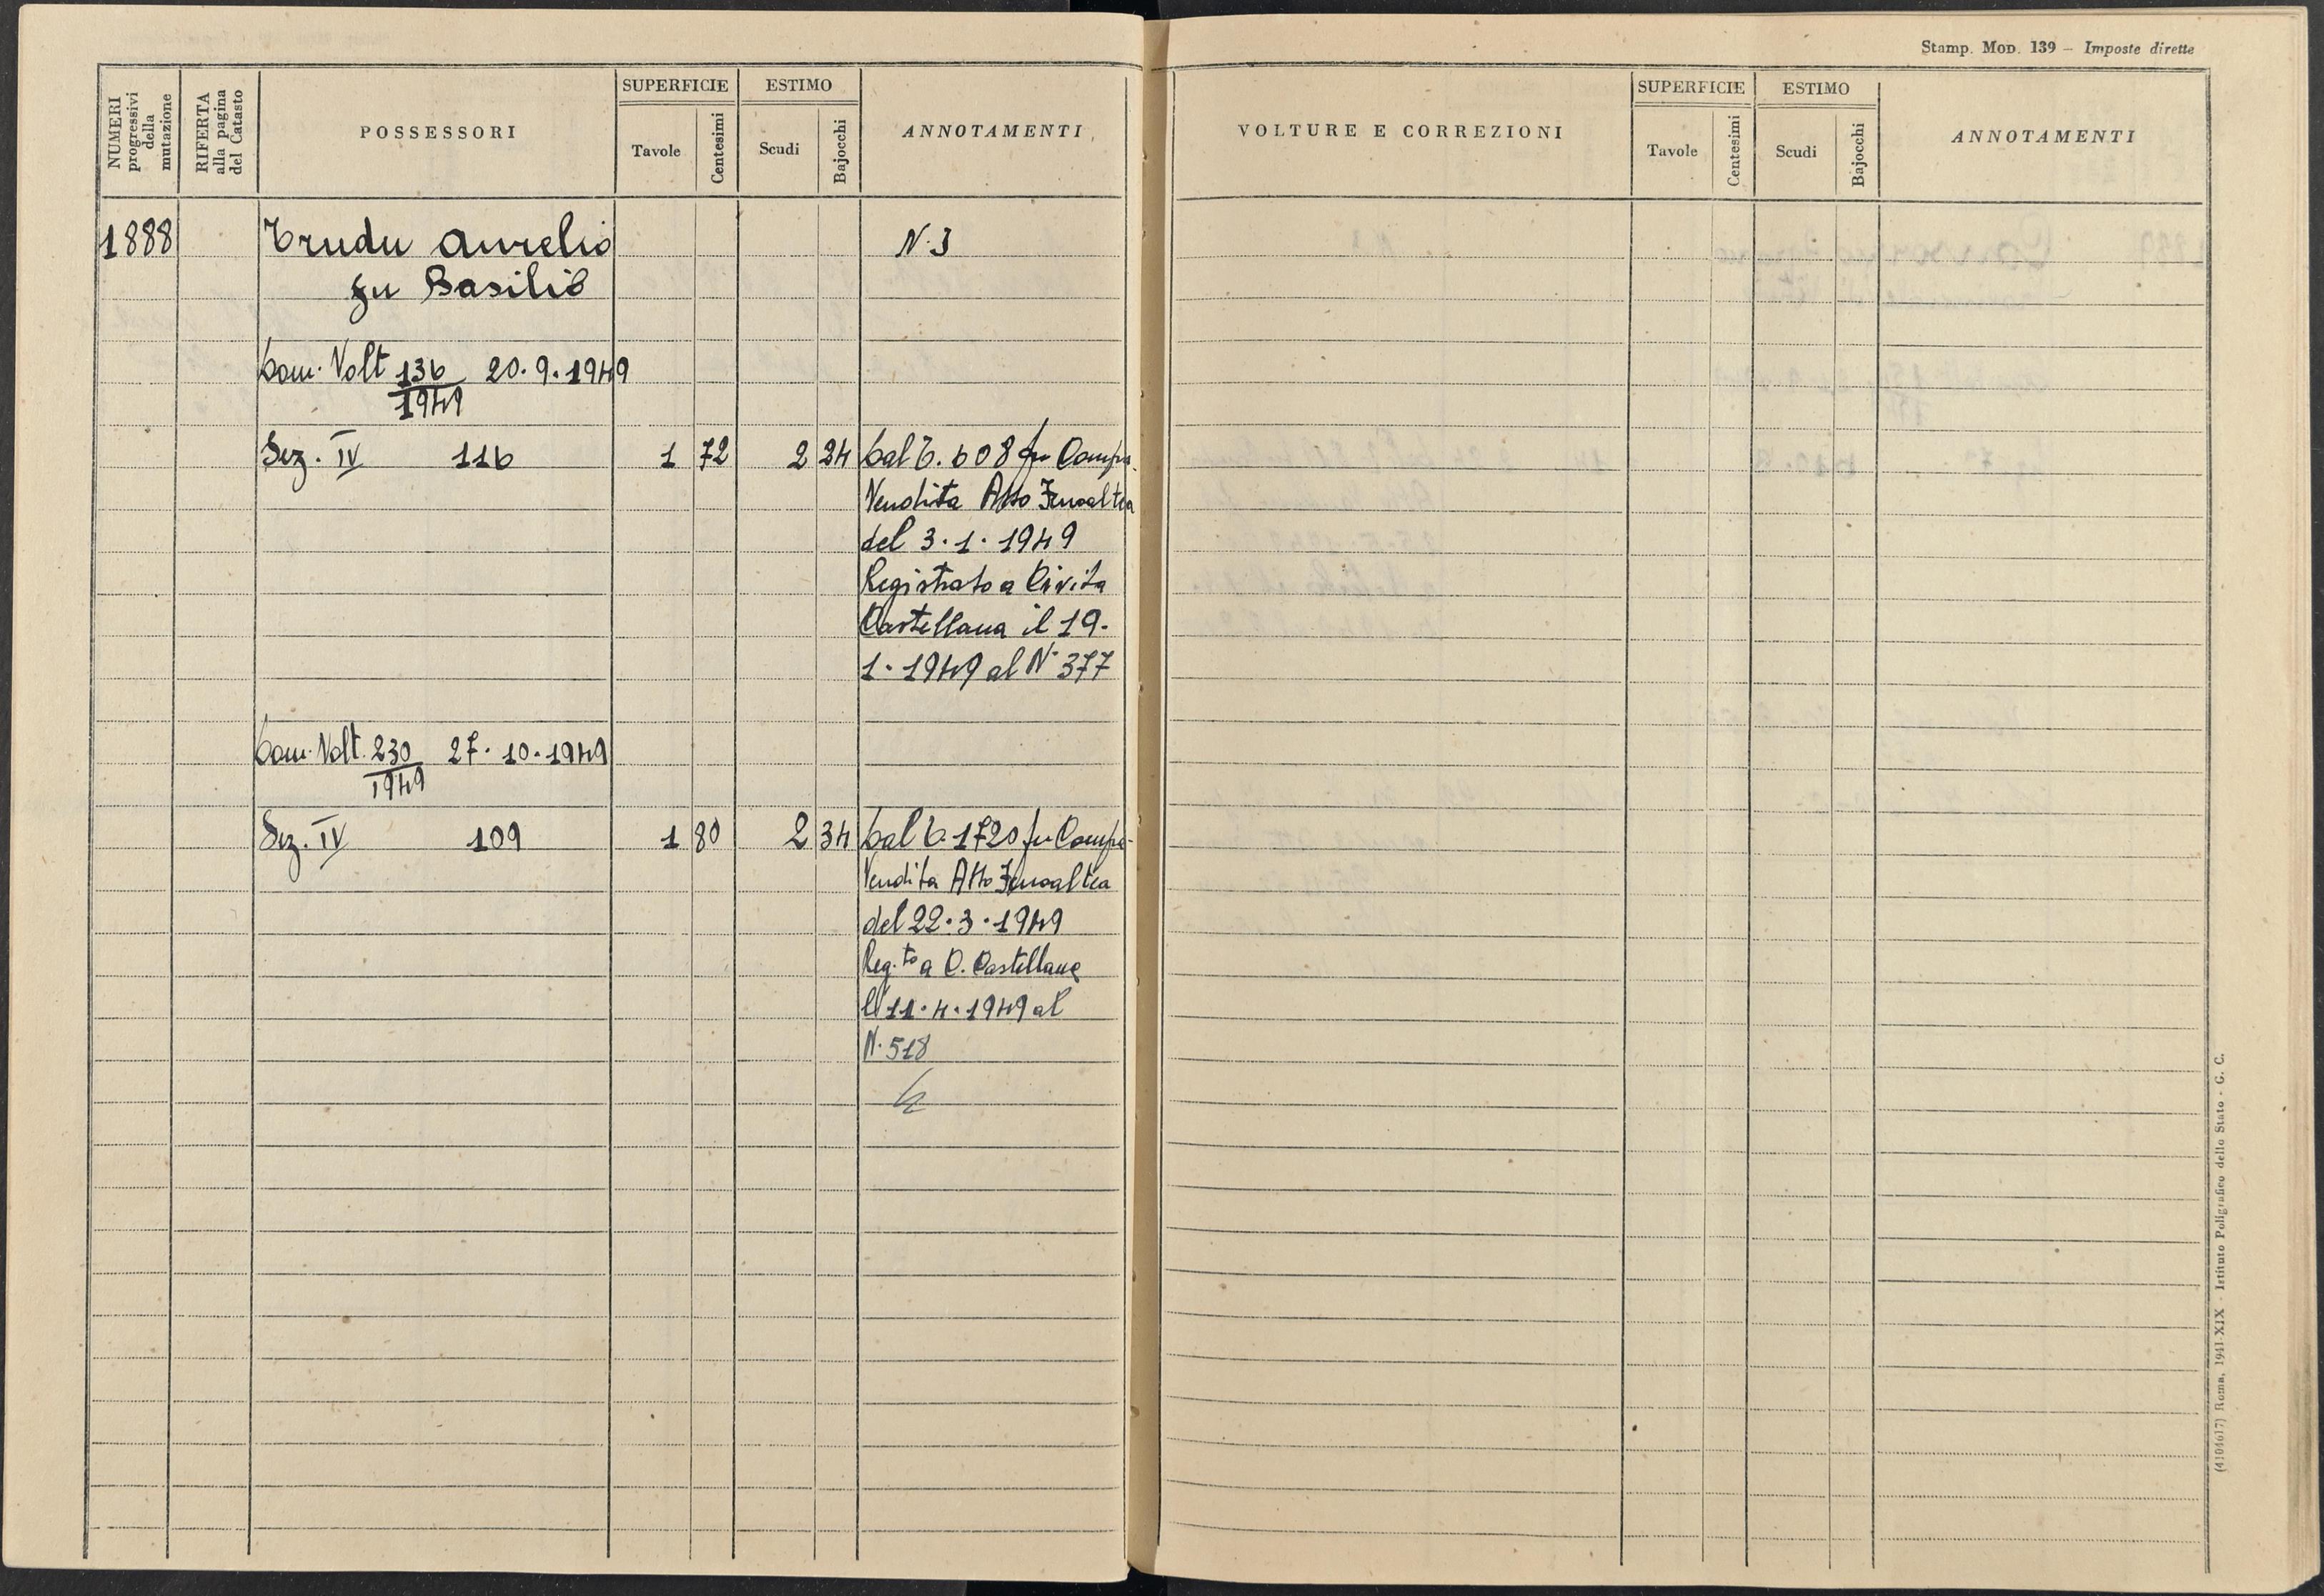 NUMERI progressivi della mutazione
RIFERTA alla pagina del Catasto
POSSESSORI
SUPERFICIE
Tavole
Centesimi
ESTIMO
Scudi
Bajocchi
ANNOTAMENTI
1888
Trudu Aurelio
N. 3
fu Basilio
Dom. Volt 136/1949 20.9.1949
Sez. IV 116 1 72 2 24 Dal C. 608 per Compra
Vendita Atto Fenoaltea
del 3.1.1949
Registrato a Civita
Castellana il 19.
1.1949 al N. 377
Dom. Volt. 230/1949 27.10.1949
Sez. IV 109 1 80 2 34 Dal C. 1720 per Compra
Vendita Atto Fenoaltea
del 22.3.1949
Reg.to a C. Castellana
il 11.4.1949 al
N. 518
Stamp. Mod. 139 – Imposte dirette
VOLTURE E CORREZIONI
SUPERFICIE
Tavole
Centesimi
ESTIMO
Scudi
Bajocchi
ANNOTAMENTI
(4104617) Roma, 1941-XIX - Istituto Poligrafico dello Stato - G. C.